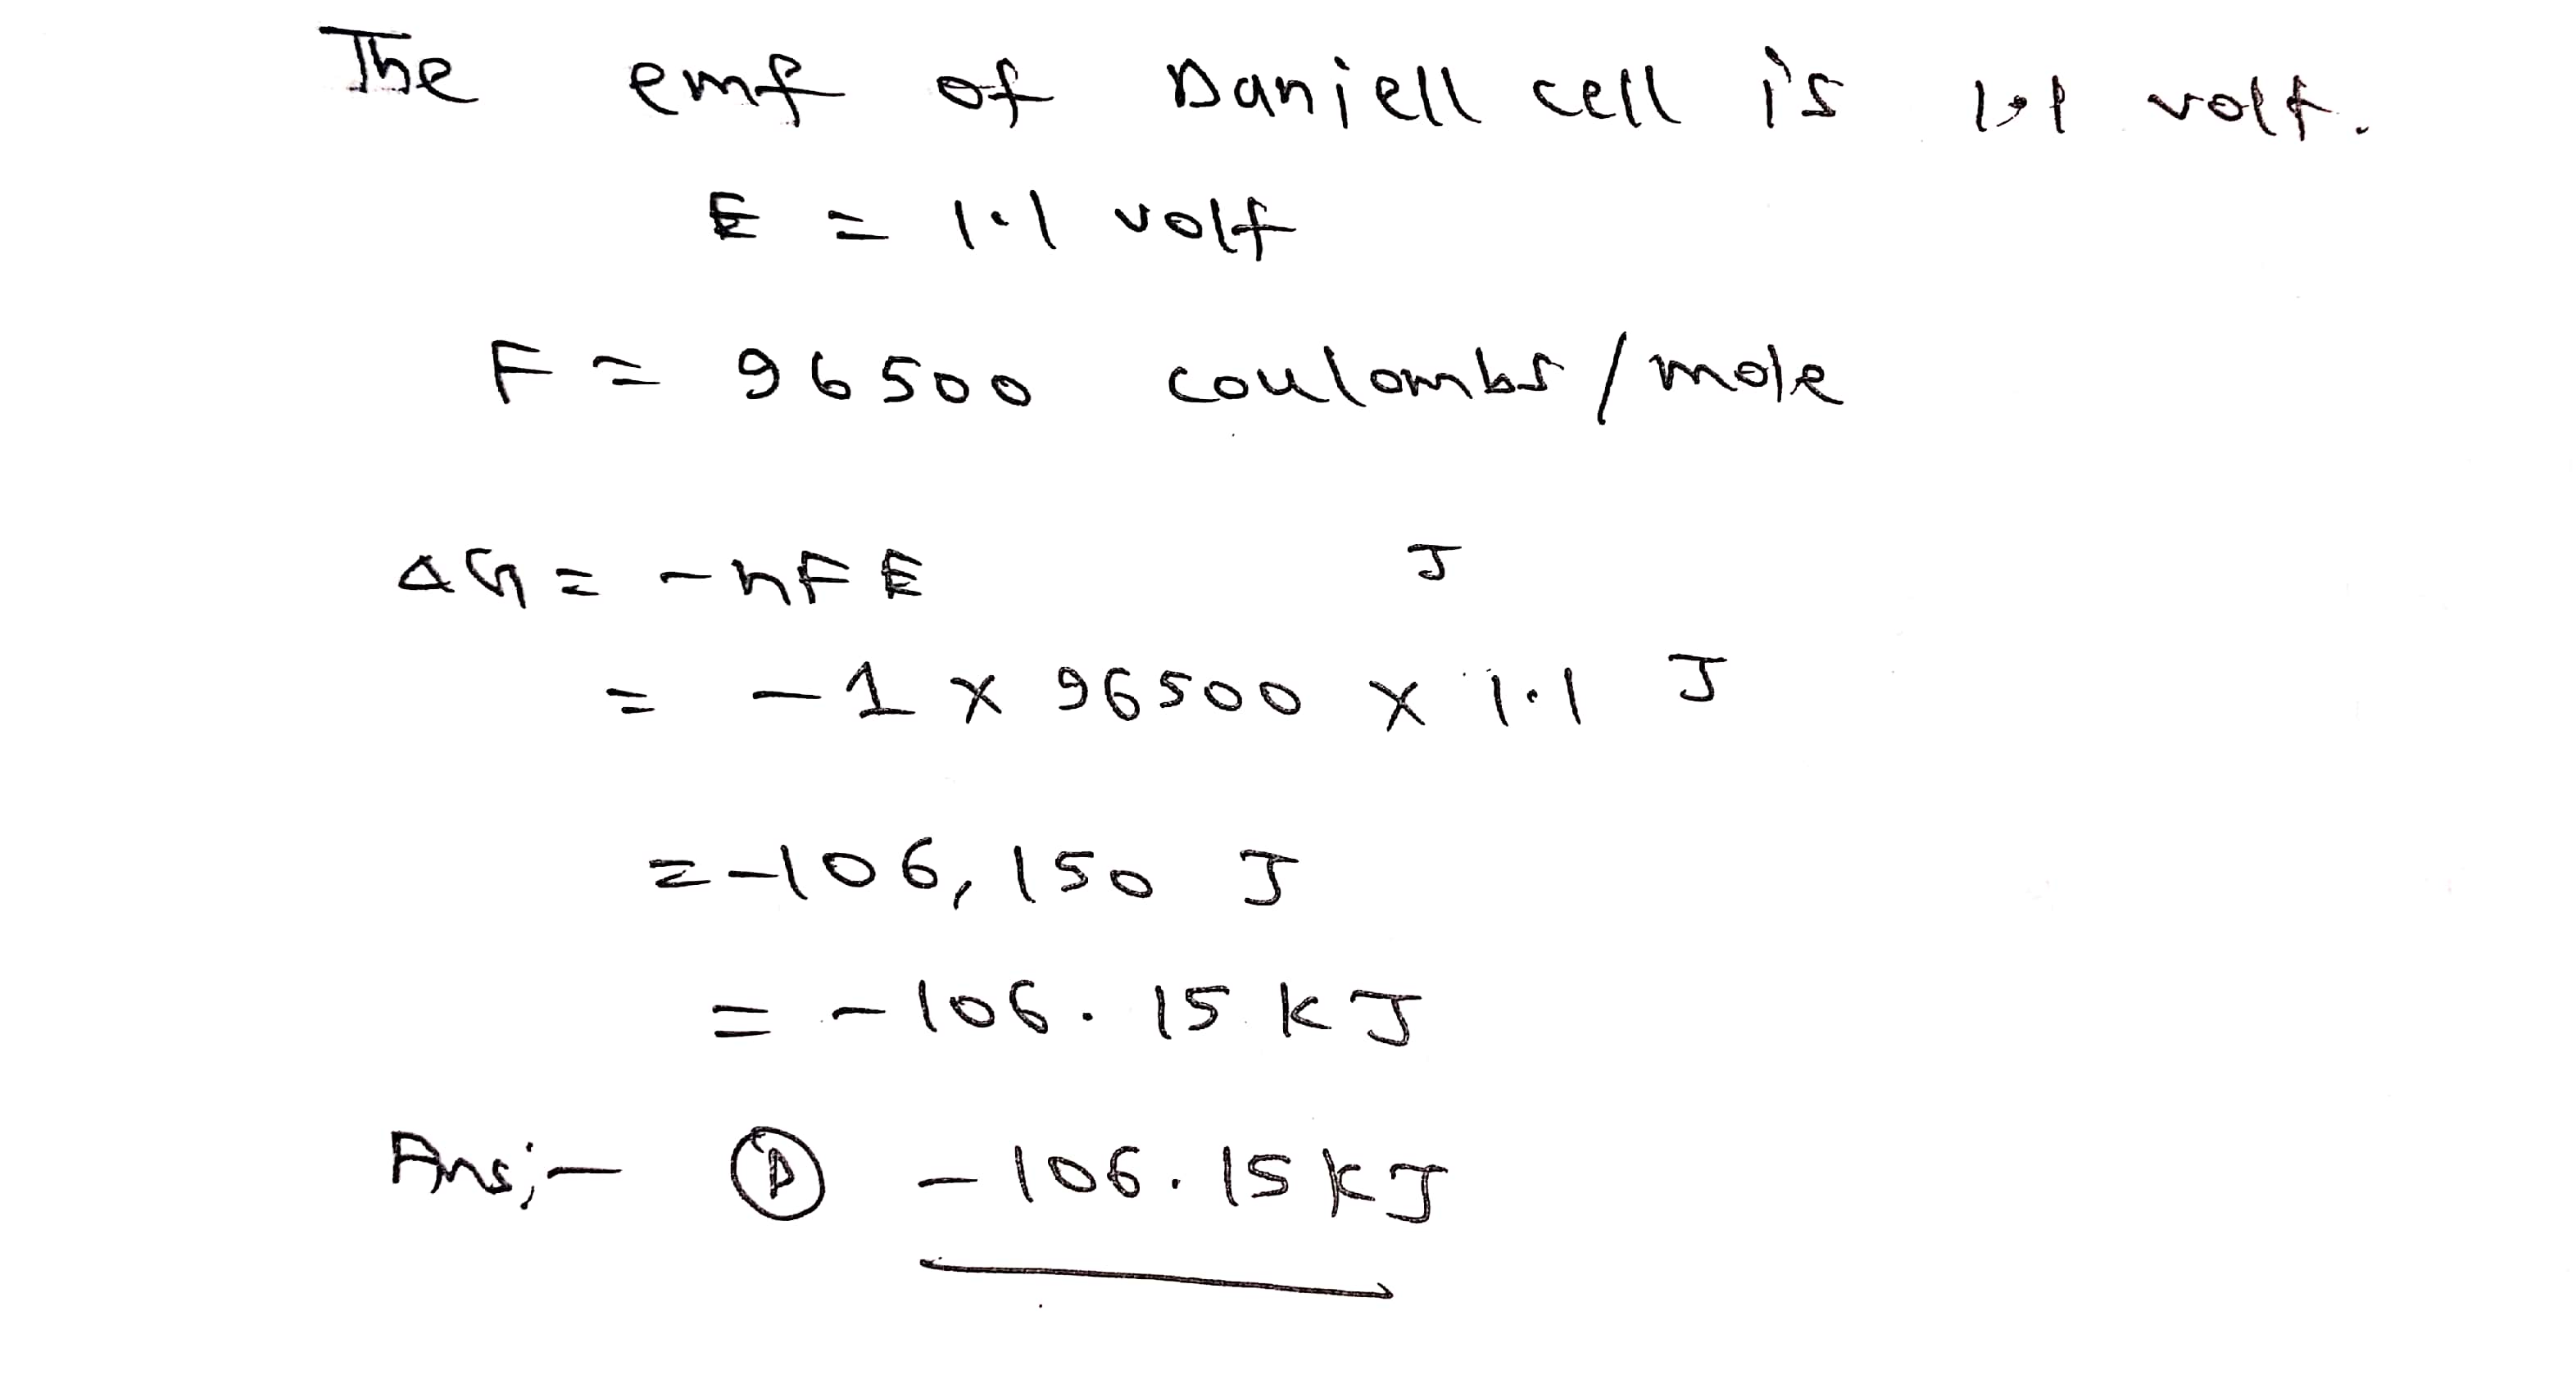 The emf of Daniell cell is 1.1 volt.
E = 1.1 volt
F = 96500 coulombs / mole
ΔG = -nFE J
= -1 x 96500 x 1.1 J
= -106,150 J
= -106.15 KJ
Ans:- D -106.15 KJ